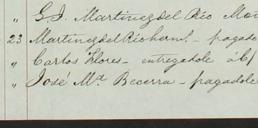 " G. J. Martinez del Rio Mon
23 Martinez del Rio herm.s - pagado
" Carlos Flores - entregadole á c/
" José Ma. Becerra - pagadole